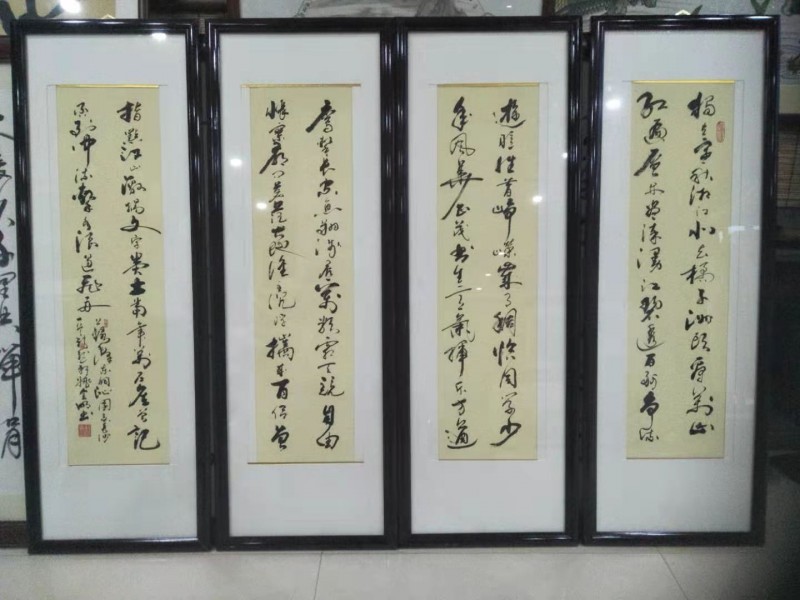 独立寒秋湘江北去橘子洲头看万山
红遍层林尽染漫江碧透百舸争流
鹰击长空鱼翔浅底万类霜天竞自由
怅寥廓问苍茫大地谁主沉浮携来百侣曾
遊忆往昔峥嵘岁月稠恰同学少
年风华正茂书生意气挥斥方遒
指点江山激扬文字粪土当年万户侯曾记
否到中流击水浪遏飞舟
录毛泽东词沁园春长沙